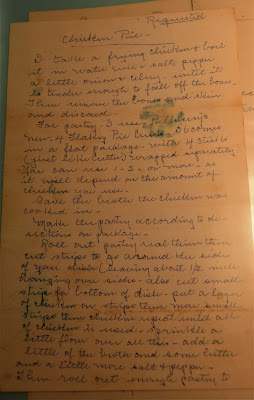 Requested
Chicken Pie -
I take a frying chicken & boil
it in water with salt & pepper
a little onion & celery until it
is tender enough to fall off the bones.
Then remove the bones and skin
and discard.
For pastry I use Pillsbury's
new Flakey Pie Crust - It comes
in a flat package with 4 sticks
(just like butter) wrapped separately
You can use 1 - 2 or more - as
it will depend on the amount of
chicken you use.
Save the broth the chicken was
cooked in -
Make the pastry according to di-
rections on package -
Roll out pastry real thin then
cut strips to go around the side
of your dish leaving about 1/2 inch
hanging over sides - also cut small
strips for bottom of dish - put a layer
of chicken on strips then more small
strips then chicken repeat until all
of chicken is used - sprinkle a
little flour over all this - add a
little of the broth and some butter
and a little more salt & pepper -
Then roll out enough pastry to